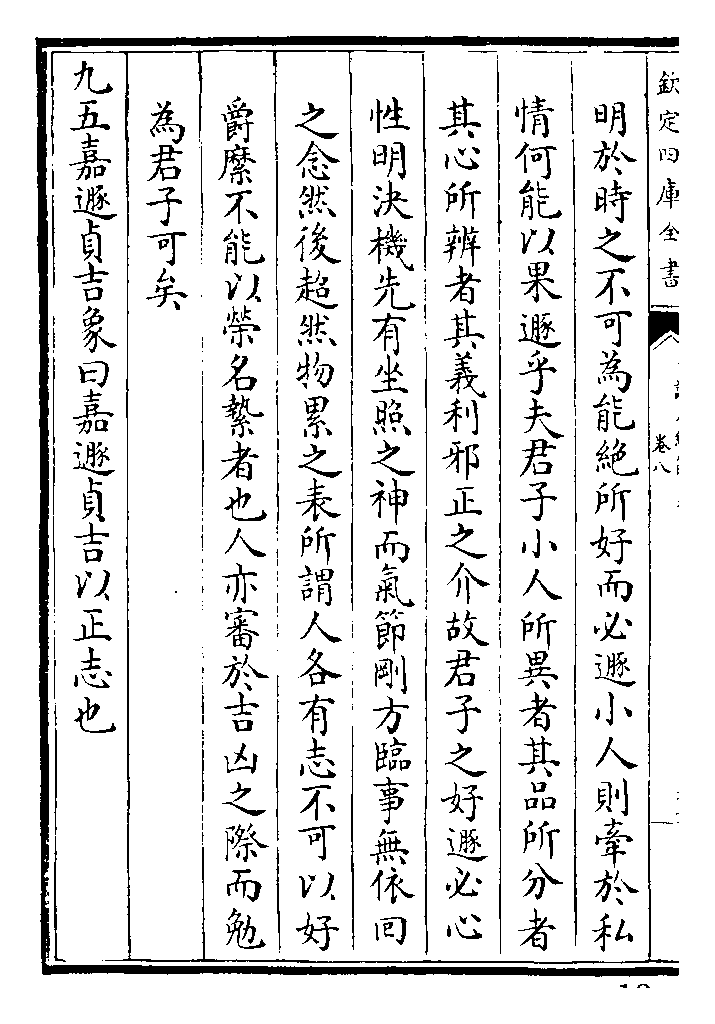 欽定四庫全書
卷八
明於時之不可為能絶所好而必遯小人則牽於私
情何能以果遯乎夫君子小人所異者其品所分者
其心所辨者其義利邪正之介故君子之好遯必心
性明決機先有坐照之神而氣節剛方臨事無依回
之念然後超然物累之表所謂人各有志不可以好
爵縻不能以榮名縶者也人亦審於吉凶之際而勉
為君子可矣
九五嘉遯貞吉象曰嘉遯貞吉以正志也